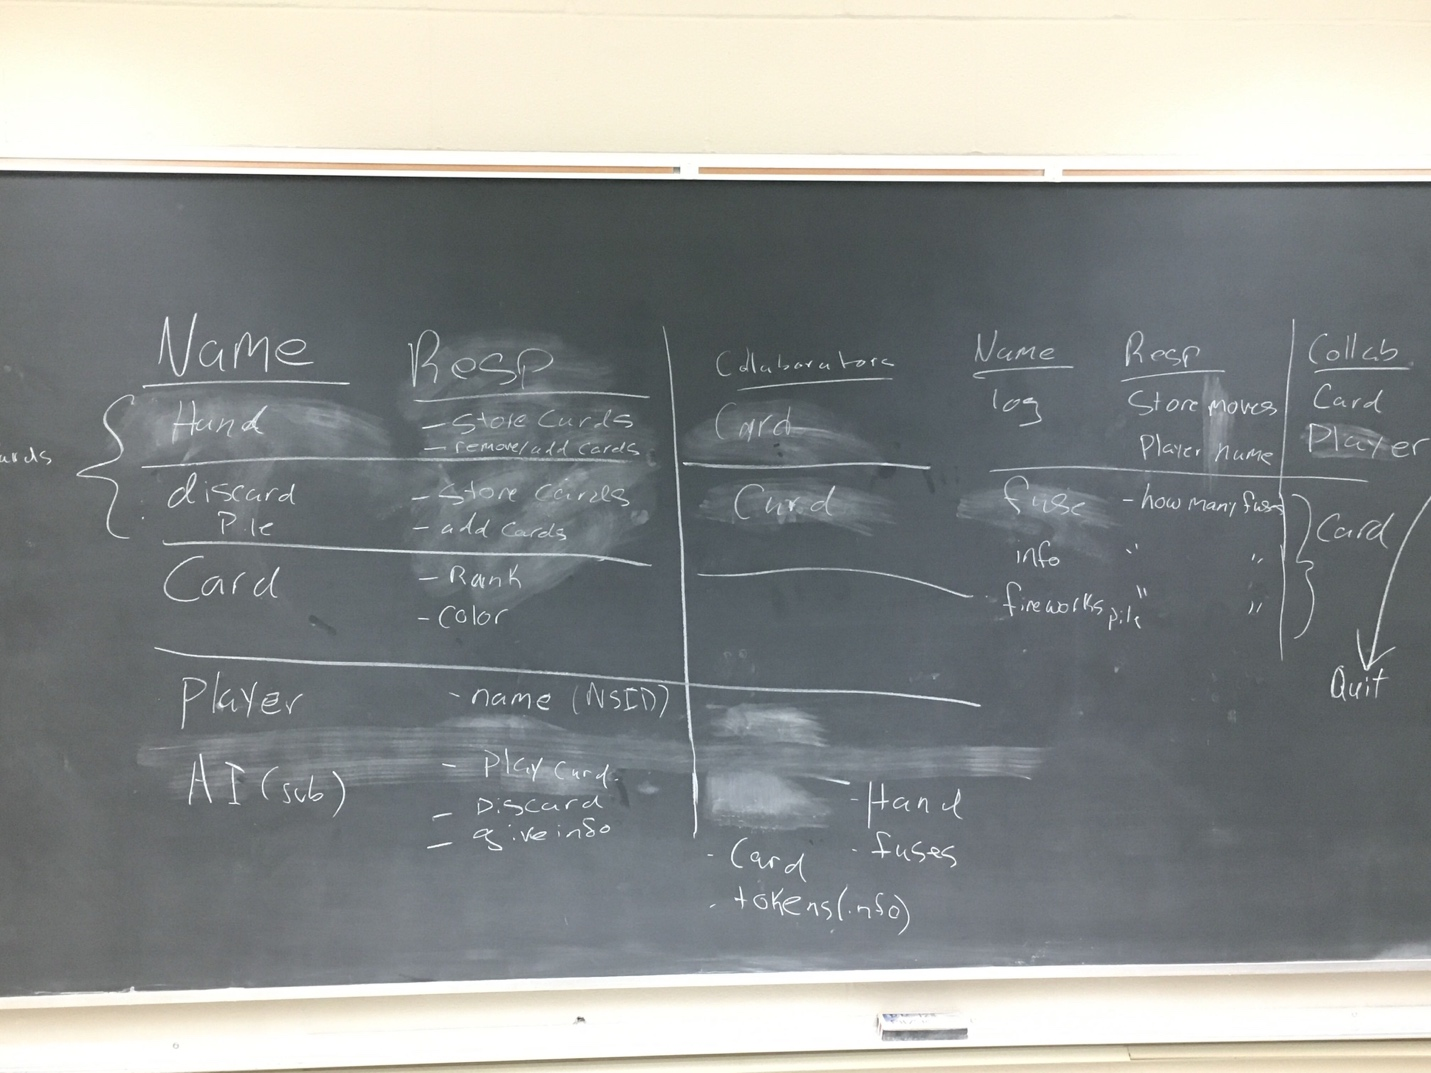 Name Resp Collaborators
Hand - Store Cards Card
- remove/add cards
discard - Store Cards Card
Pile - add Cards
Card - Rank
- Color
Player - name (NSID)
AI (sub) - Play Card
- Discard
- give info
- Hand
- Card - fuses
- tokens (info)
Name Resp Collab
log Store moves Card
Player name Player
fuse - how many fuses Card
info " "
fireworks pile " "
Quit